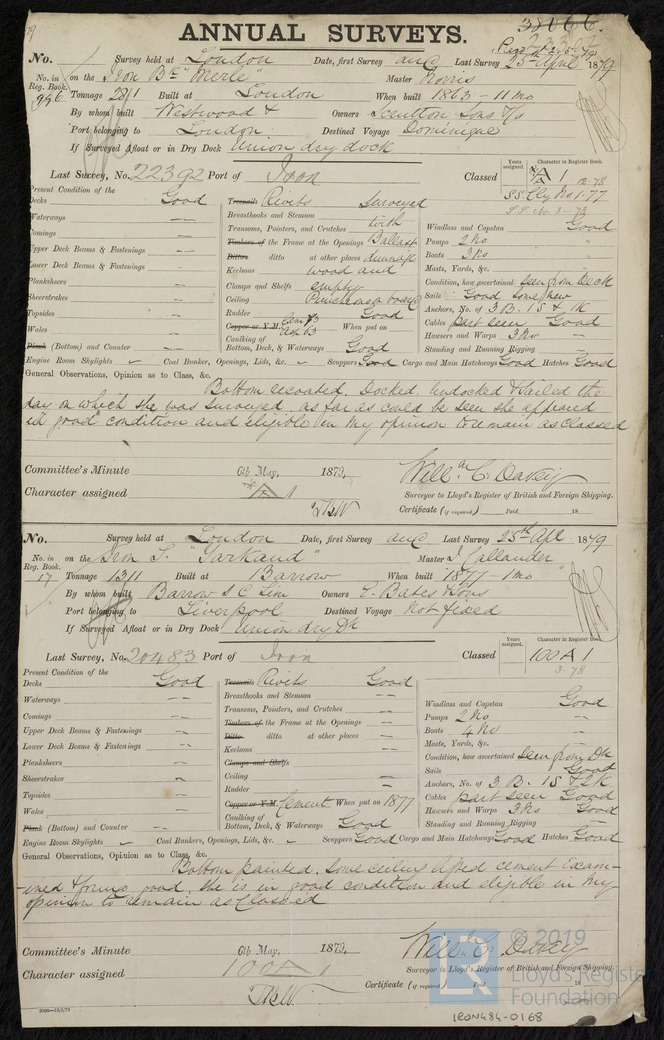 ANNUAL SURVEYS.
38066
No. Survey held at London Date, first Survey and Last Survey 25 April 1879
No. in Reg. Book. on the Iron Bk "Merle" Master Norris
956 Tonnage 281 Built at London When built 1863 - 11 mo
By whom built Westwood & Owners Scrutton Sons & Co
Port belonging to London Destined Voyage Dominique
If Surveyed Afloat or in Dry Dock Union dry dock
Last Survey, No. 22392 Port of Iron Classed A 1 12.78
Years assigned. Character in Register Book.
S.S. Cly No 1-77
Present Condition of the
Decks Good
Waterways
Comings
Upper Deck Beams & Fastenings
Lower Deck Beams & Fastenings
Planksheers
Sheerstrakes
Topsides
Wales
Plank (Bottom) and Counter
Treenails Rivets surveyed
Breasthooks and Stemson
Transoms, Pointers, and Crutches with
Timbers of the Frame at the Openings Ballast
Ditto ditto at other places dunnage
Keelsons wood and
Clamps and Shelfs empty
Ceiling Puncheons on board
Rudder Good
Copper or Y.M. Cem 73 When put on
Caulking of Bottom, Deck, & Waterways Good
Windlass and Capstan Good
Pumps 2 No "
Boats 3 No "
Masts, Yards, &c.
Condition, how ascertained seen from Deck
Sails Good some new
Anchors, No. of 3 B. 1 S & 1 K
Cables part seen Good
Hawsers and Warps 3 No
Standing and Running Rigging
Engine Room Skylights Coal Bunker, Openings, Lids, &c. Scuppers Good Cargo and Main Hatchways Good Hatches Good
General Observations, Opinion as to Class, &c.
Bottom recoated. Docked, undocked & sailed the
day on which she was surveyed, as far as could be seen she appeared
in good condition and eligible in my opinion to remain as classed
Committee's Minute 6th May, 1879.
Character assigned A 1
Willm. C. Davey
Surveyor to Lloyd's Register of British and Foreign Shipping.
Certificate (if required) Paid 18
No. Survey held at London Date, first Survey and Last Survey 25th Apl 1879
No. in Reg. Book. on the Iron S. "Yarkand" Master J. Callander
17 Tonnage 1311 Built at Barrow When built 1877 - 1 mo
By whom built Barrow S C Lim Owners E. Bates & Sons
Port belonging to Liverpool Destined Voyage Not fixed
If Surveyed Afloat or in Dry Dock Union dry Dk
Last Survey, No. 20483 Port of Iron Classed 100 A 1
Years assigned. Character in Register Book.
3.78
Present Condition of the
Decks Good
Waterways
Comings
Upper Deck Beams & Fastenings
Lower Deck Beams & Fastenings
Planksheers
Sheerstrakes
Topsides
Wales
Plank (Bottom) and Counter
Treenails Rivets Good
Breasthooks and Stemson
Transoms, Pointers, and Crutches
Timbers of the Frame at the Openings
Ditto ditto at other places
Keelsons
Clamps and Shelfs
Ceiling
Rudder
Copper or Y.M. Cement When put on 1877
Caulking of Bottom, Deck, & Waterways Good
Windlass and Capstan Good
Pumps 2 No
Boats 4 No
Masts, Yards, &c.
Condition, how ascertained seen from Dk
Sails Good
Anchors, No. of 3 B. 1 S & 2 K
Cables part seen Good
Hawsers and Warps 3 No Good
Standing and Running Rigging
Engine Room Skylights Coal Bunkers, Openings, Lids, &c. Scuppers Good Cargo and Main Hatchways Good Hatches Good
General Observations, Opinion as to Class, &c.
Bottom painted. Some ceiling lifted cement Exam-
-ined & found good. She is in good condition and eligible in my
opinion to remain as Classed
Committee's Minute 6th May, 1879.
Character assigned 100 A 1
Will. C. Davey
Surveyor to Lloyd's Register of British and Foreign Shipping.
Certificate (if required) Paid 18
LR © 2019 Lloyd's Register Foundation
IRON484-0168